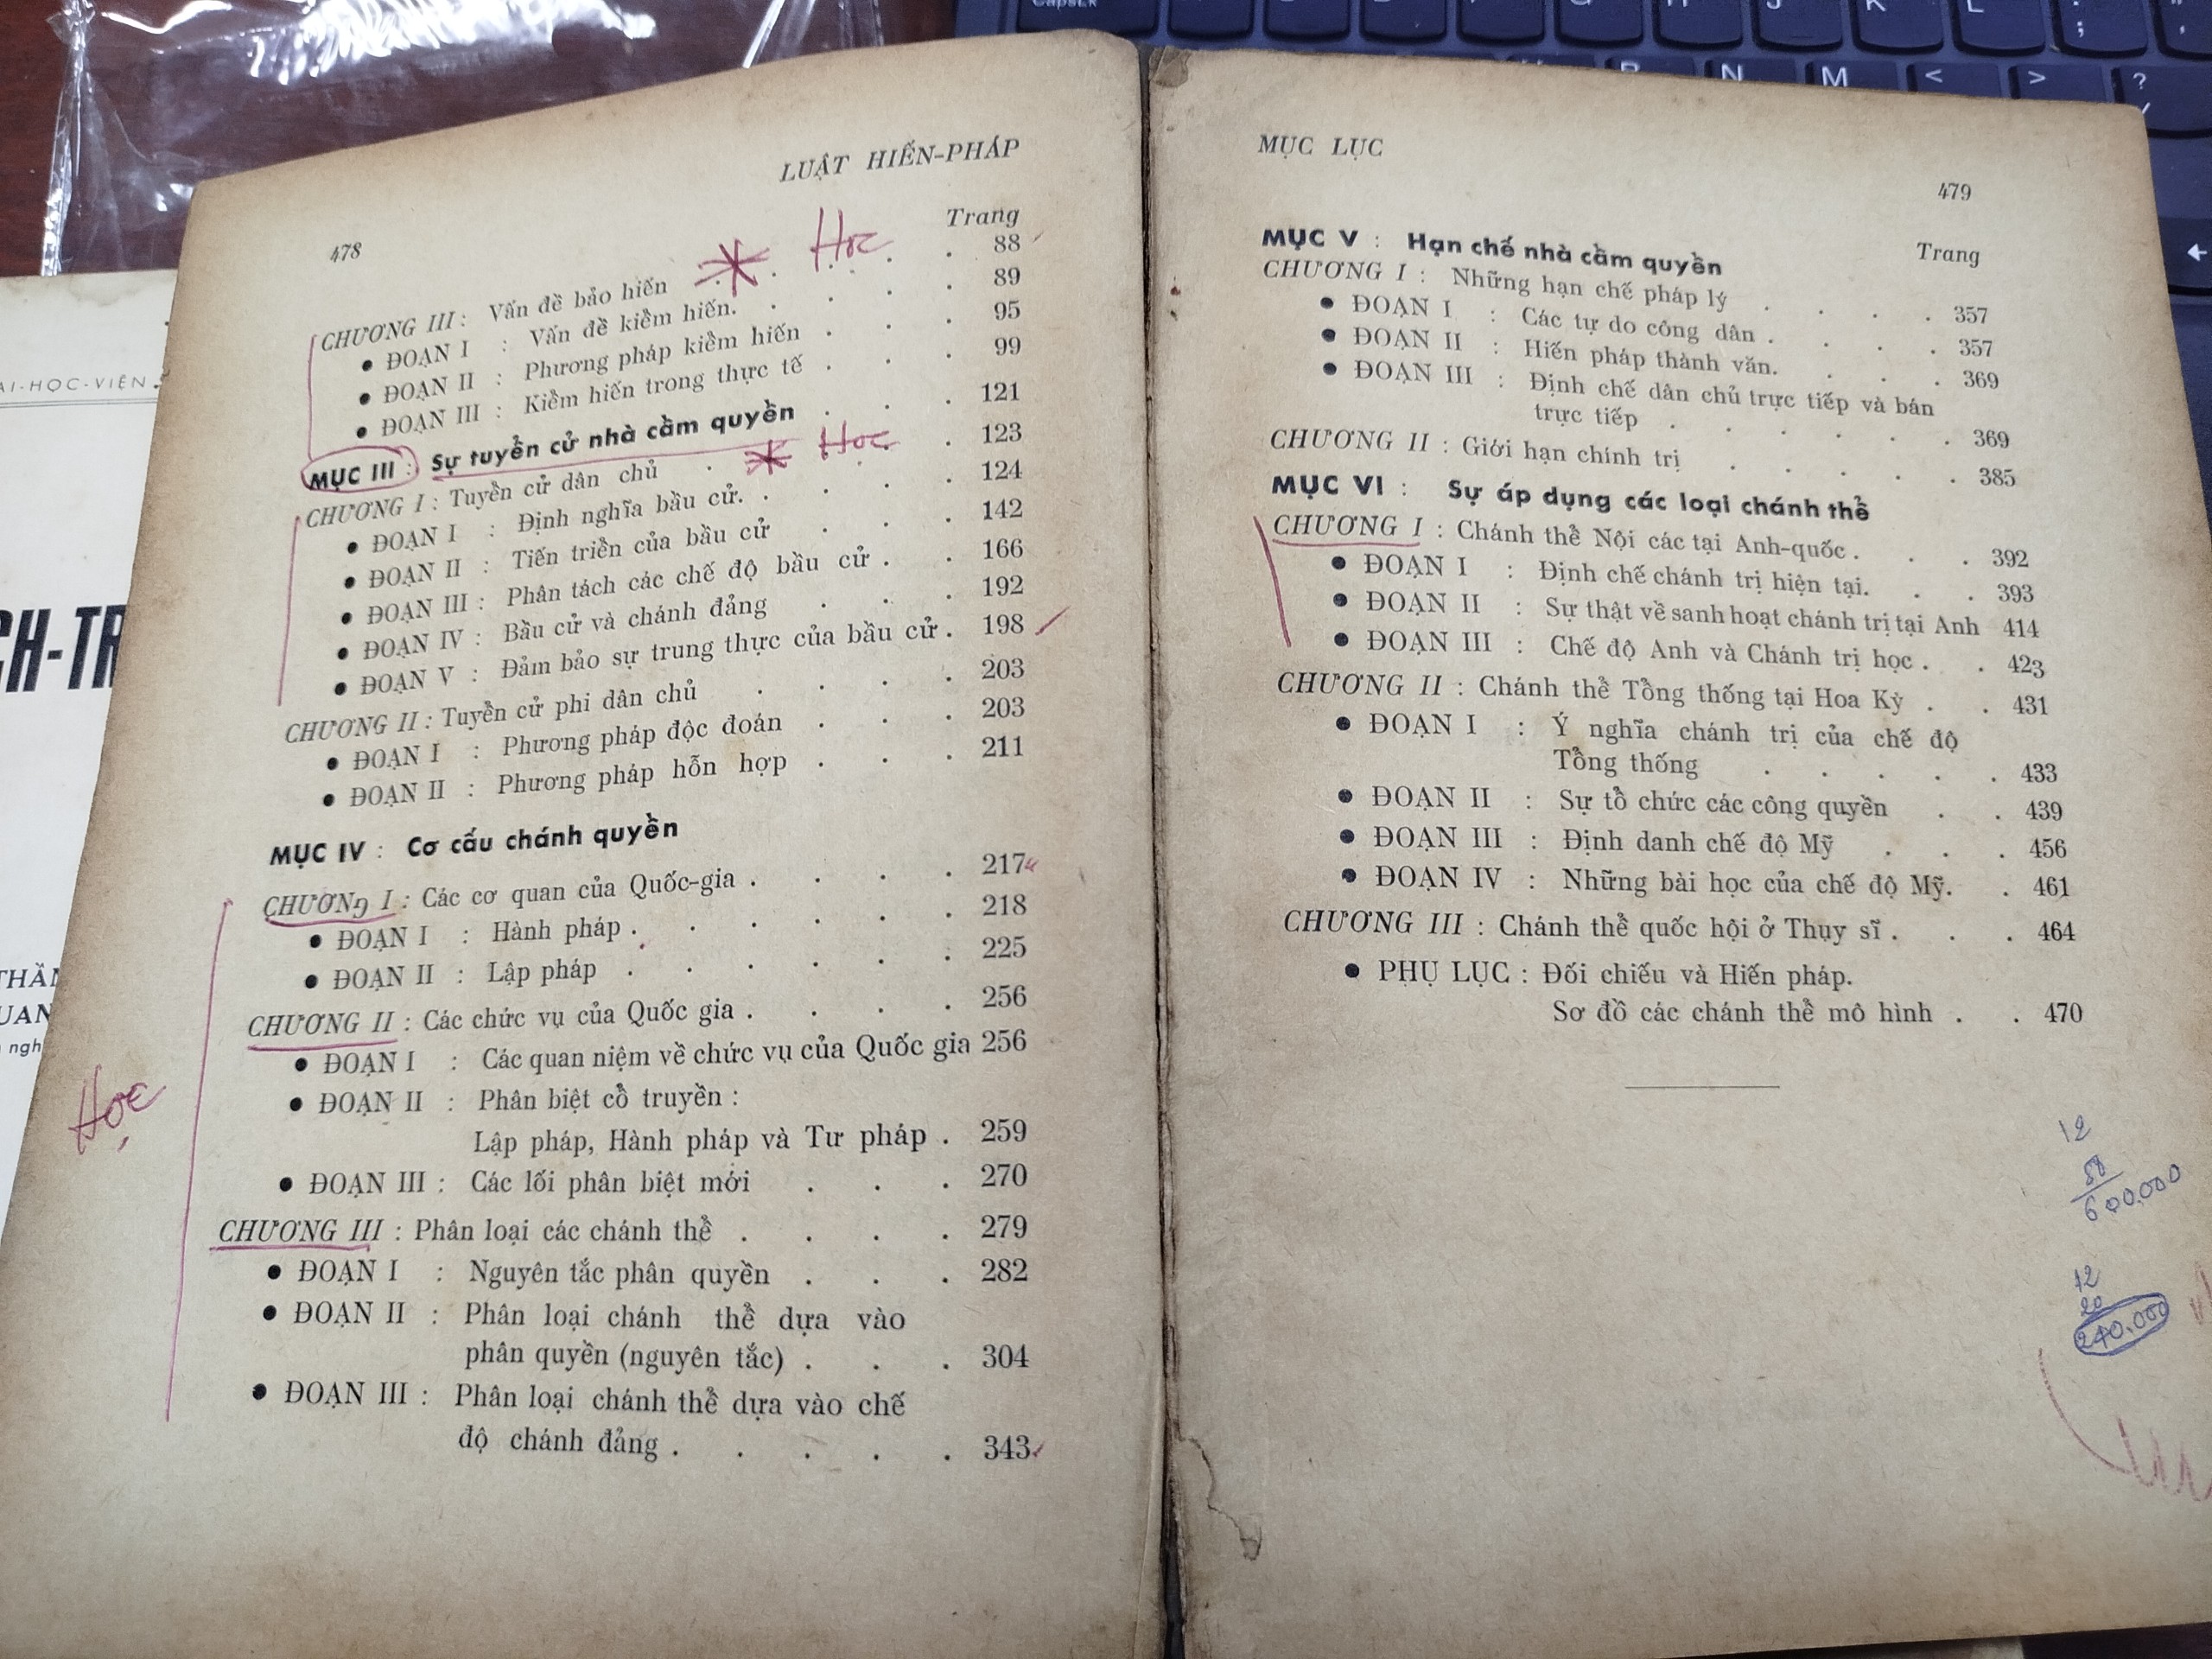 LUẬT HIẾN-PHÁP
478
Trang
CHƯƠNG III : Vấn đề bảo hiến . . . . 88
Học
• ĐOẠN I : Vấn đề kiểm hiến. . . . 89
• ĐOẠN II : Phương pháp kiểm hiến . . . 95
• ĐOẠN III : Kiểm hiến trong thực tế . . . 99
MỤC III : Sự tuyển cử nhà cầm quyền . . . 121
CHƯƠNG I : Tuyển cử dân chủ . . 123
Học
• ĐOẠN I : Định nghĩa bầu cử. . . . . 124
• ĐOẠN II : Tiến triển của bầu cử . . . 142
• ĐOẠN III : Phân tách các chế độ bầu cử . . 166
• ĐOẠN IV : Bầu cử và chánh đảng . . . 192
• ĐOẠN V : Đảm bảo sự trung thực của bầu cử . 198
CHƯƠNG II : Tuyển cử phi dân chủ . . . . 203
• ĐOẠN I : Phương pháp độc đoán . . . 203
• ĐOẠN II : Phương pháp hỗn hợp . . . 211
MỤC IV : Cơ cấu chánh quyền
CHƯƠNG I : Các cơ quan của Quốc-gia . . . . 217
• ĐOẠN I : Hành pháp . . . . . . 218
• ĐOẠN II : Lập pháp . . . . . . 225
CHƯƠNG II : Các chức vụ của Quốc gia . . . . 256
• ĐOẠN I : Các quan niệm về chức vụ của Quốc gia 256
Học
• ĐOẠN II : Phân biệt cổ truyền :
Lập pháp, Hành pháp và Tư pháp . 259
• ĐOẠN III : Các lối phân biệt mới . . . 270
CHƯƠNG III : Phân loại các chánh thể . . . . 279
• ĐOẠN I : Nguyên tắc phân quyền . . . 282
• ĐOẠN II : Phân loại chánh thể dựa vào
phân quyền (nguyên tắc) . . . 304
• ĐOẠN III : Phân loại chánh thể dựa vào chế
độ chánh đảng . . . . . 343
MỤC LỤC
479
Trang
MỤC V : Hạn chế nhà cầm quyền
CHƯƠNG I : Những hạn chế pháp lý . . . . 357
• ĐOẠN I : Các tự do công dân . . . . 357
• ĐOẠN II : Hiến pháp thành văn. . . . 369
• ĐOẠN III : Định chế dân chủ trực tiếp và bán
trực tiếp . . . . . . 369
CHƯƠNG II : Giới hạn chính trị . . . . . 385
MỤC VI : Sự áp dụng các loại chánh thể
CHƯƠNG I : Chánh thể Nội các tại Anh-quốc . . . 392
• ĐOẠN I : Định chế chánh trị hiện tại. . . 393
• ĐOẠN II : Sự thật về sanh hoạt chánh trị tại Anh 414
• ĐOẠN III : Chế độ Anh và Chánh trị học . . 423
CHƯƠNG II : Chánh thể Tổng thống tại Hoa Kỳ . . 431
• ĐOẠN I : Ý nghĩa chánh trị của chế độ
Tổng thống . . . . . 433
• ĐOẠN II : Sự tổ chức các công quyền . . 439
• ĐOẠN III : Định danh chế độ Mỹ . . . 456
• ĐOẠN IV : Những bài học của chế độ Mỹ. . 461
CHƯƠNG III : Chánh thể quốc hội ở Thụy sĩ . . . 464
• PHỤ LỤC : Đối chiếu và Hiến pháp.
Sơ đồ các chánh thể mô hình . . 470
12
600.000
12
20
240.000